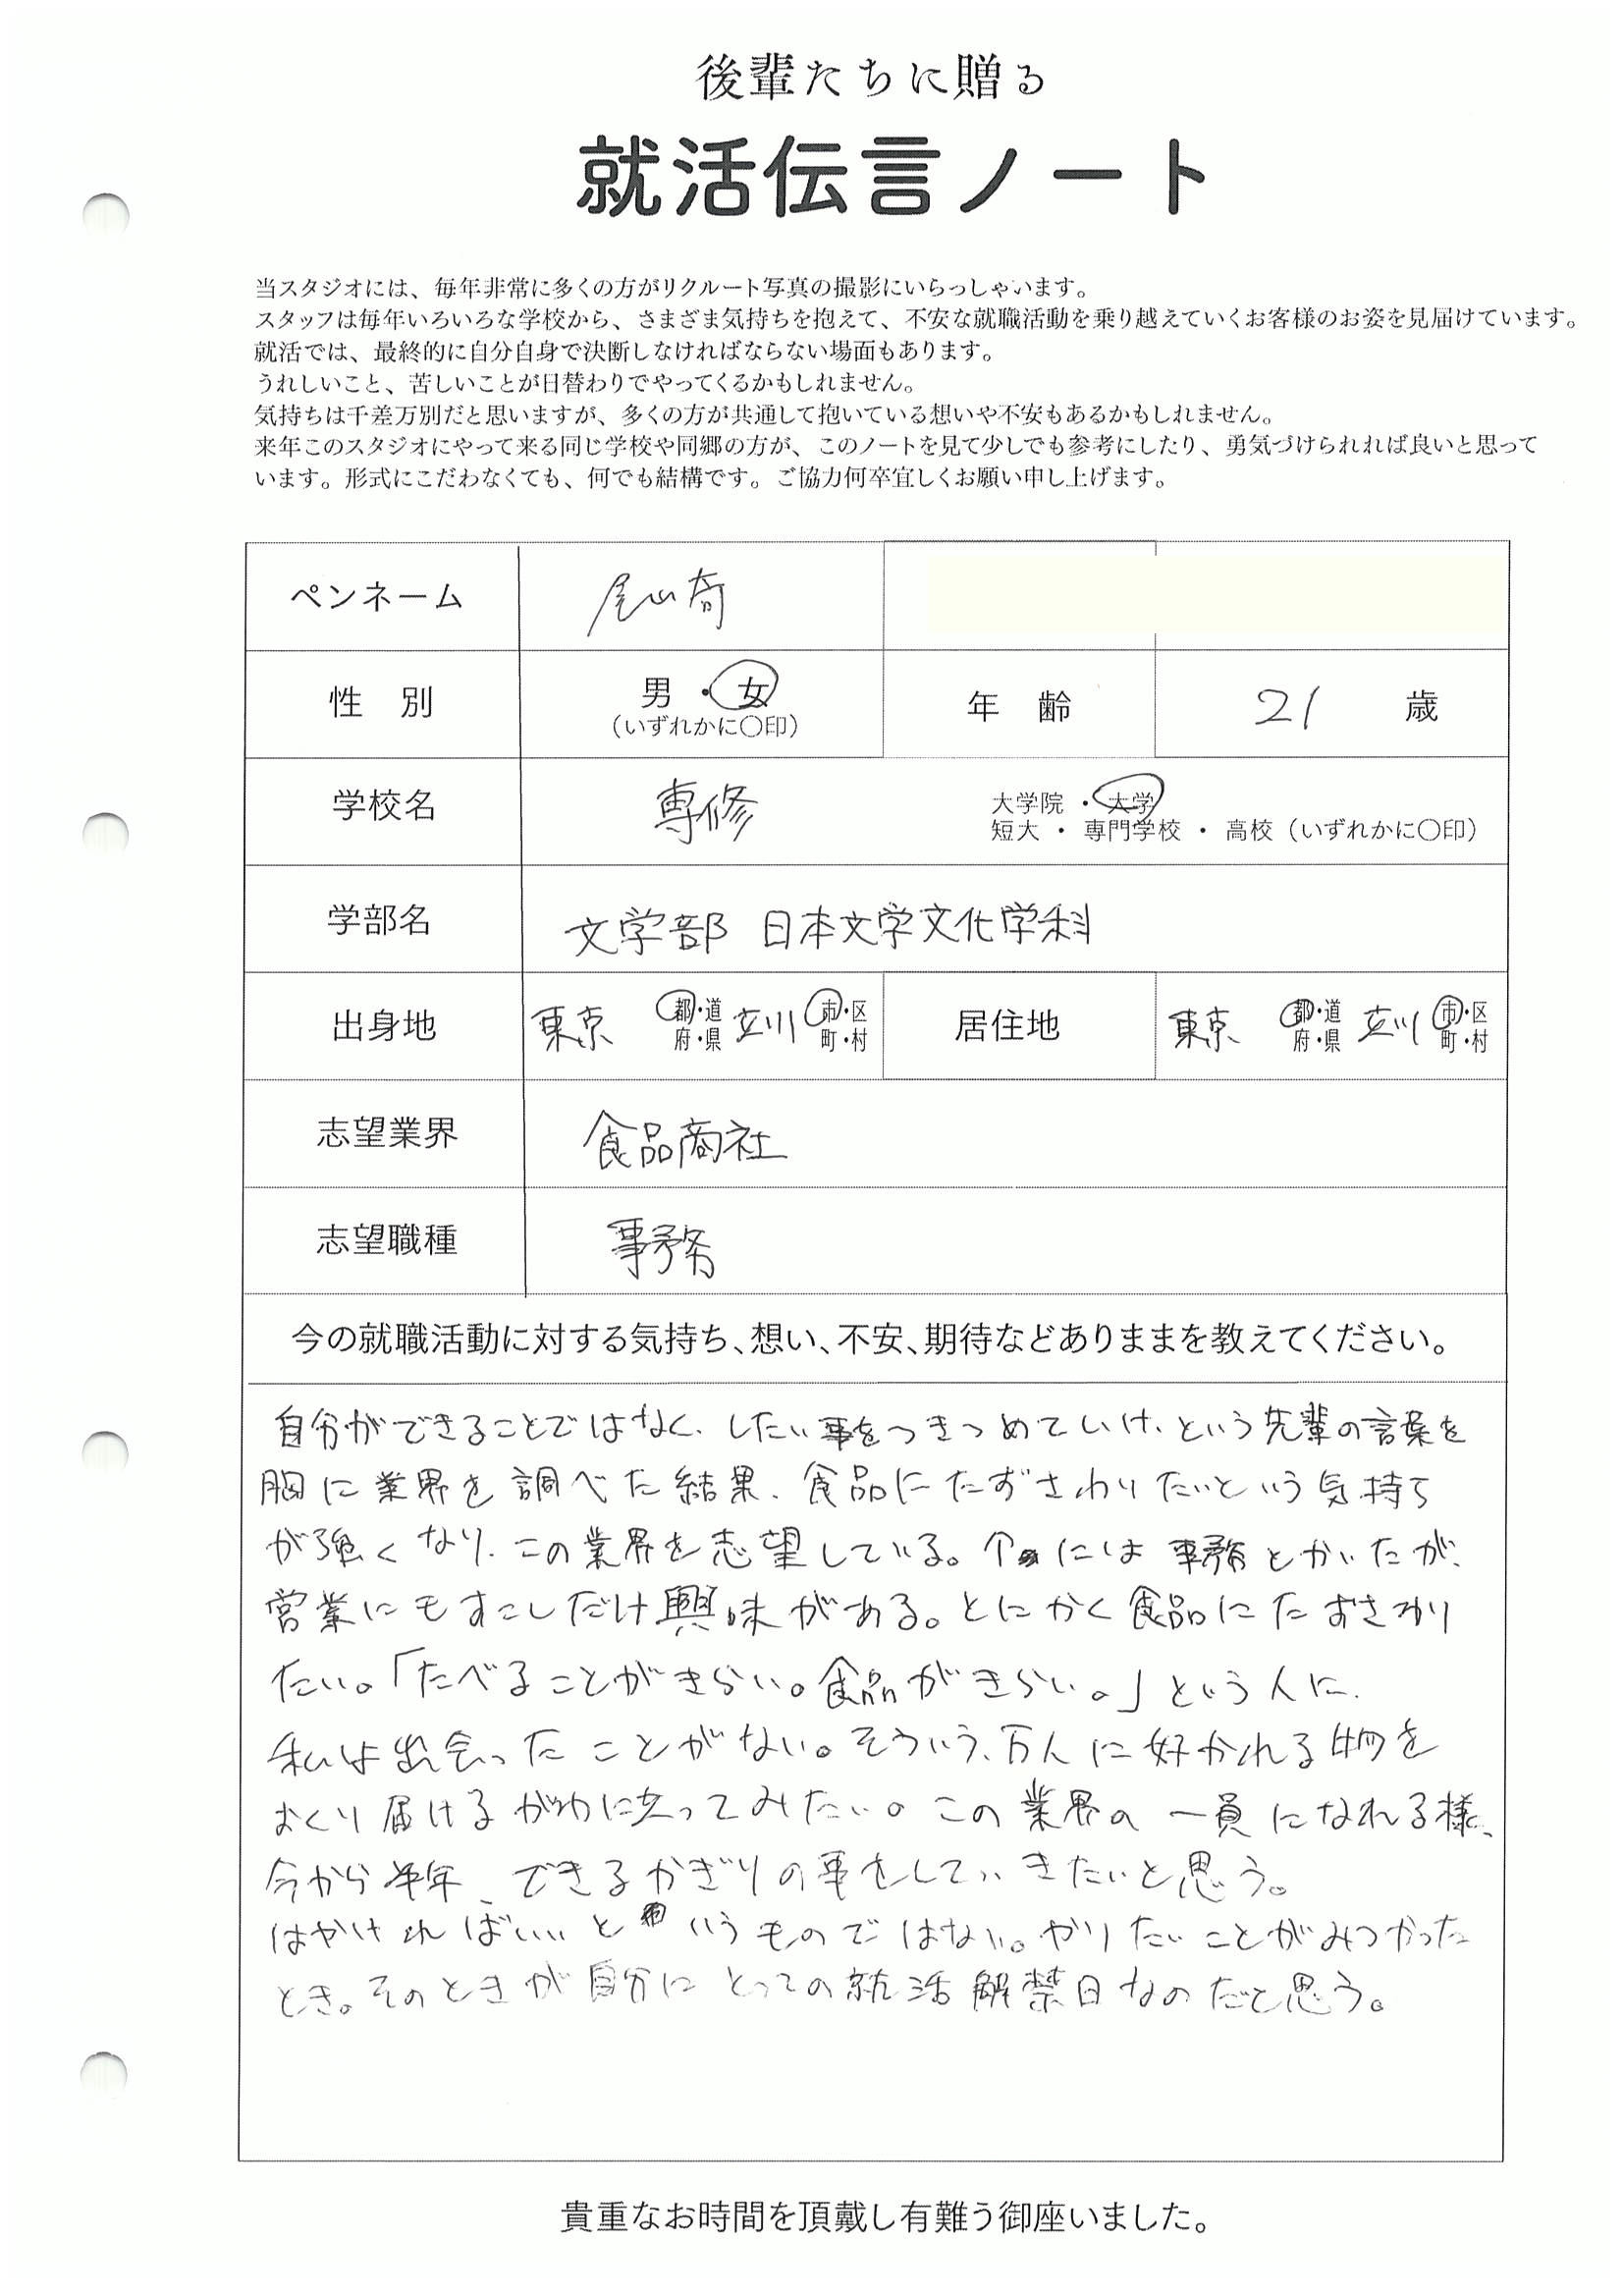 後輩たちに贈る
就活伝言ノート
当スタジオには、毎年非常に多くの方がリクルート写真の撮影にいらっしゃいます。
スタッフは毎年いろいろな学校から、さまざま気持ちを抱えて、不安な就職活動を乗り越えていくお客様のお姿を見届けています。
就活では、最終的に自分自身で決断しなければならない場面もあります。
うれしいこと、苦しいことが日替わりでやってくるかもしれません。
気持ちは千差万別だと思いますが、多くの方が共通して抱いている想いや不安もあるかもしれません。
来年このスタジオにやって来る同じ学校や同郷の方が、このノートを見て少しでも参考にしたり、勇気づけられれば良いと思って
います。形式にこだわなくても、何でも結構です。ご協力何卒宜しくお願い申し上げます。
ペンネーム
性 別 男・女 年 齢 21 歳
(いずれかに〇印)
学校名 専修 大学院・大学
短大・専門学校・高校（いずれかに〇印）
学部名 文学部 日本文学文化学科
出身地 東京 都・道 立川 市・区 居住地 東京 都・道 立川 市・区
府・県 町・村 府・県 町・村
志望業界 食品商社
志望職種 事務
今の就職活動に対する気持ち、想い、不安、期待などありままを教えてください。
自分ができることではなく、したい事をつきつめていけ、という先輩の言葉を
胸に業界を調べた結果、食品にたずさわりたいという気持ち
が強くなり、この業界を志望している。↑には事務とかいたが、
営業にもすこしだけ興味がある。とにかく食品にたずさわり
たい。「たべることがきらい。食品がきらい。」という人に、
私は出会ったことがない。そういう、万人に好かれる物を
おくり届けるがわに立ってみたい。この業界の一員になれる様、
今から半年、できるかぎりの事をしていきたいと思う。
はやければいいというものではない。やりたいことがみつかった
とき。そのときが自分にとっての就活解禁日なのだと思う。
貴重なお時間を頂戴し有難う御座いました。